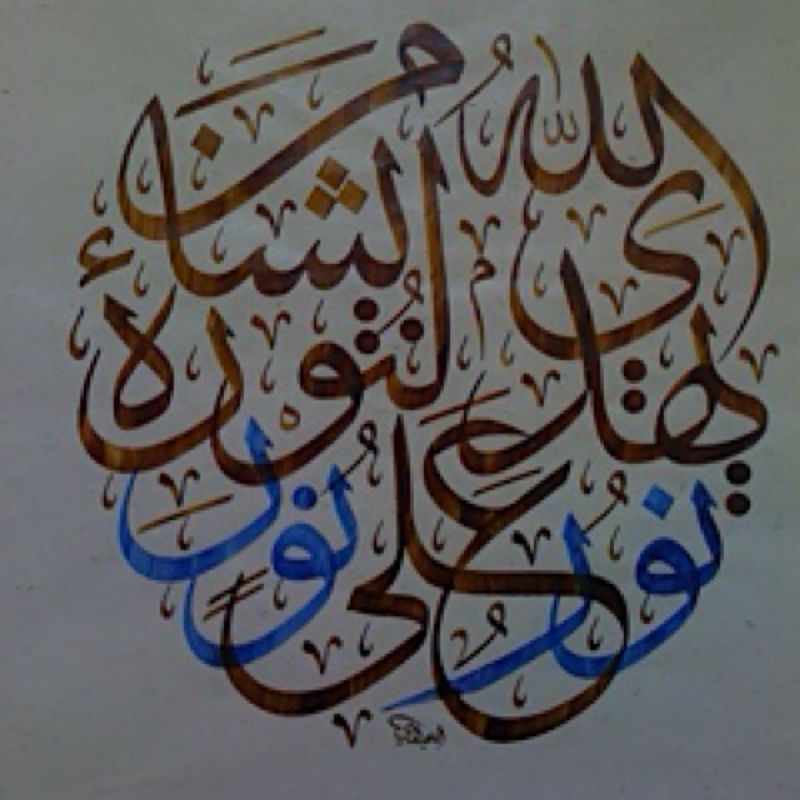 نُورٌ عَلَى نُورٍ
يَهْدِى اللّٰهُ
لِنُورِهِ
مَنْ يَشَاءُ